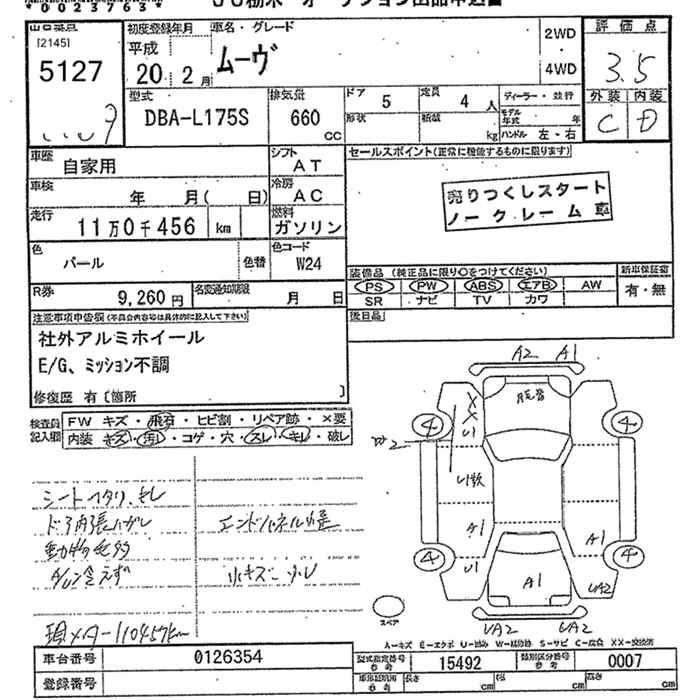 *00237637*
JU栃木 オークション出品申込書
山口 菜穂
[21451]
5127
初度登録年月
平成
20年 2月
車名・グレード
ムーヴ
2WD
・
4WD
評価点
3.5
型式
DBA-L175S
排気量
660
CC
ドア
5
定員
4
人
形状
積載
kg
ディーラー・並行
モデル年式
年
ハンドル 左・右
外装
内装
C
D
車歴
自家用
シフト
AT
セールスポイント(正常に機能するものに限ります)
車検
年 月( 日)
冷房
AC
売りつくしスタート
ノークレーム車
走行
11万0千456
km
燃料
ガソリン
色
パール
色替
色コード
W24
装備品 (純正品に限り○をつけてください)
新車保証書
R券
9,260円
名変通知期限
月 日
PS PW ABS エアB AW
有・無
SR ナビ TV カワ
後日品
注意事項申告欄(不具合内容等は具体的に記入して下さい)
社外アルミホイール
E/G、ミッション不調
修復歴 有〔箇所 〕
検査員
記入欄
FW キズ・飛石・ヒビ割・リペア跡・×要
内装 キズ・汚レ・コゲ・穴・スレ・キレ・破レ
A2 A1
4
4
4
4
XX
U1
W2
A1
U1
A1
A1
UA2
UA2
UA2
シートヘタリ、キレ
ドア内張ハガレ
エンドパネル歪
A/C冷えず
小キズ
現メーター110457km
スペア
車台番号
0126354
登録番号
型式指定番号
参考
15492
類別区分番号
参考
0007
長さ
cm
幅
cm
高さ
cm